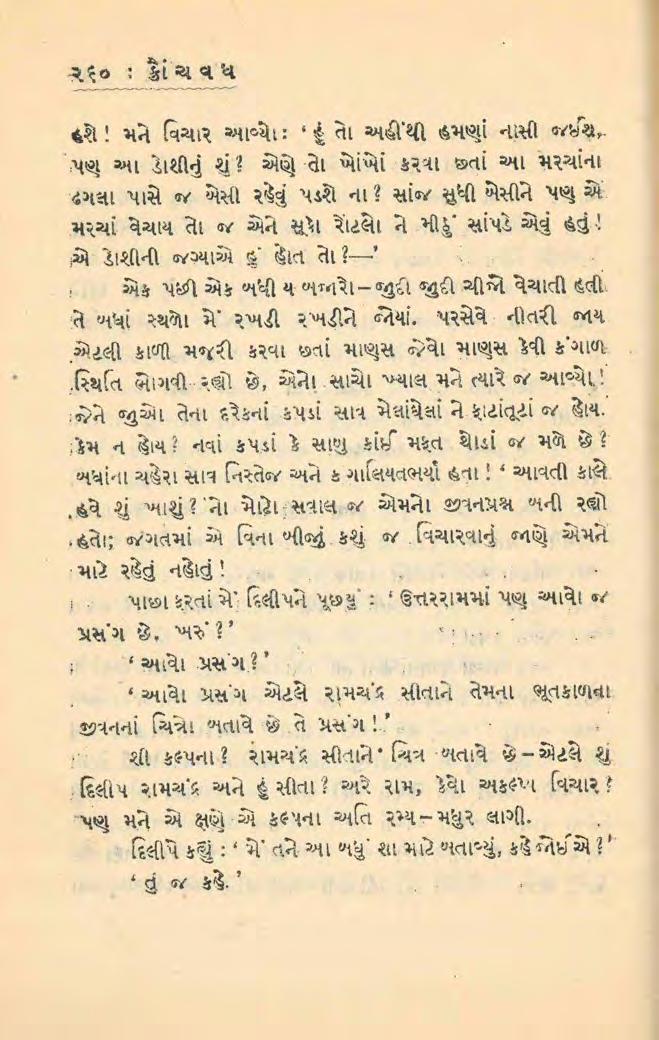 ૨૬૦ : ક્રૌંચવધ
હશે! મને વિચાર આવ્યો: ‘હું તો અહીંથી હમણાં નાસી જઈશ,
પણ આ ડોશીનું શું? એણે તો ખોંખોં કરવા છતાં આ મરચાંના
ઢગલા પાસે જ બેસી રહેવું પડશે ના? સાંજ સુધી બેસીને પણ એ
મરચાં વેચાય તો જ એને સૂકો રોટલો ને મીઠું સાંપડે એવું હતું!
એ ડોશીની જગ્યાએ હું હોત તો?—’
એક પછી એક બધી ય બજારો–જુદી જુદી ચીજો વેચાતી હતી
તે બધાં સ્થળો મેં રખડી રખડીને જોયાં. પરસેવે નીતરી જાય
એટલી કાળી મજૂરી કરવા છતાં માણસ જેવો માણસ કેવી કંગાળ
સ્થિતિ ભોગવી રહ્યો છે, એનો સાચો ખ્યાલ મને ત્યારે જ આવ્યો!
જેને જુઓ તેના દરેકનાં કપડાં સાવ મેલાંઘેલાં ને ફાટાંતૂટાં જ હોય.
કેમ ન હોય? નવાં કપડાં કે સાબુ કાંઈ મફત થોડાં જ મળે છે?
બધાંના ચહેરા સાવ નિસ્તેજ અને કંગાલિયતભર્યા હતા! ‘આવતી કાલે
હવે શું ખાશું?’નો મોટો સવાલ જ એમનો જીવનપ્રશ્ન બની રહ્યો
હતો; જગતમાં એ વિના બીજું કશું જ વિચારવાનું જાણે એમને
માટે રહેતું નહોતું!
પાછા ફરતાં મેં દિલીપને પૂછયું : ‘ઉત્તરરામમાં પણ આવો જ
પ્રસંગ છે, ખરું?’
‘આવો પ્રસંગ?’
‘આવો પ્રસંગ એટલે રામચંદ્ર સીતાને તેમના ભૂતકાળના
જીવનનાં ચિત્રો બતાવે છે તે પ્રસંગ!’
શી કલ્પના? રામચંદ્ર સીતાને ચિત્ર બતાવે છે–એટલે શું
દિલીપ રામચંદ્ર અને હું સીતા? અરે રામ, કેવો અકલ્પ્ય વિચાર?
પણ મને એ ક્ષણે એ કલ્પના અતિ રમ્ય–મધુર લાગી.
દિલીપે કહ્યું : ‘મેં તને આ બધું શા માટે બતાવ્યું, કહે જોઈએ?’
‘તું જ કહે.’